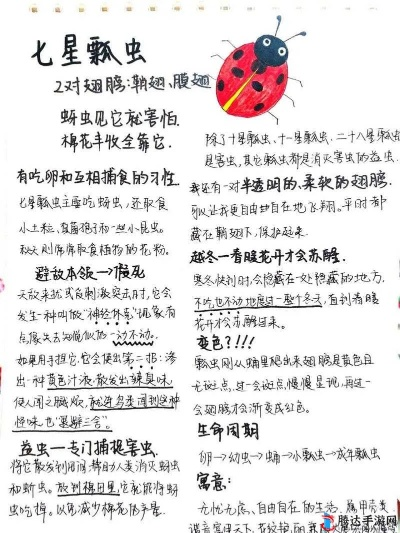 七星瓢虫
2对翅膀:鞘翅、膜翅
蚜虫见它就害怕.
棉花丰收全靠它.
有吃卵和互相捕食的习性
七星瓢虫主要吃蚜虫，还取食
小土粒、真菌孢子和一些小昆虫。
秋天则常常取食植物的花粉。
避敌本领→假死
天敌来扰或有刺激突击时，它会
发生一种叫做“神经休克”现象有
点像失去知觉似的一动不动。
如果用手捏它，它会使出第二招：渗
出一种黄色汁液，散发出辣臭味，
使人闻之脑烦，就连鸟类闻到这种
怪味，也“退避三舍”。
益虫一专门捕捉害虫.
将它散发到田间，帮助人类消灭蚜虫
和蚧虫。放到棉田里，它就能将蚜
虫吃掉。以免减少棉花的产量.
除了十星瓢虫、十一星瓢虫、二十八星瓢虫
是害虫，其它瓢虫都是消灭害虫的益虫
我还有一对半透明的、柔软的翅膀.
可以让我更自由自在地飞翔。平时都
藏在鞘翅下，保护起来.
越冬一春暖花开才会苏醒.
寒冬快到时，会隐藏在一处隐蔽的地方.
不吃也不动地度过一整个冬天，直到春暖
花开才会苏醒过来。
变色?!!!
瓢虫刚从蛹里爬出来翅膀是黄色且
无斑点，过一会斑点慢慢呈现，再过一
会翅膀才会渐变成红色。
生命周期
卵→幼虫→蛹→小瓢虫→成年瓢虫
寓意：
无忧无虑、自由自在的生活
腾达手游网